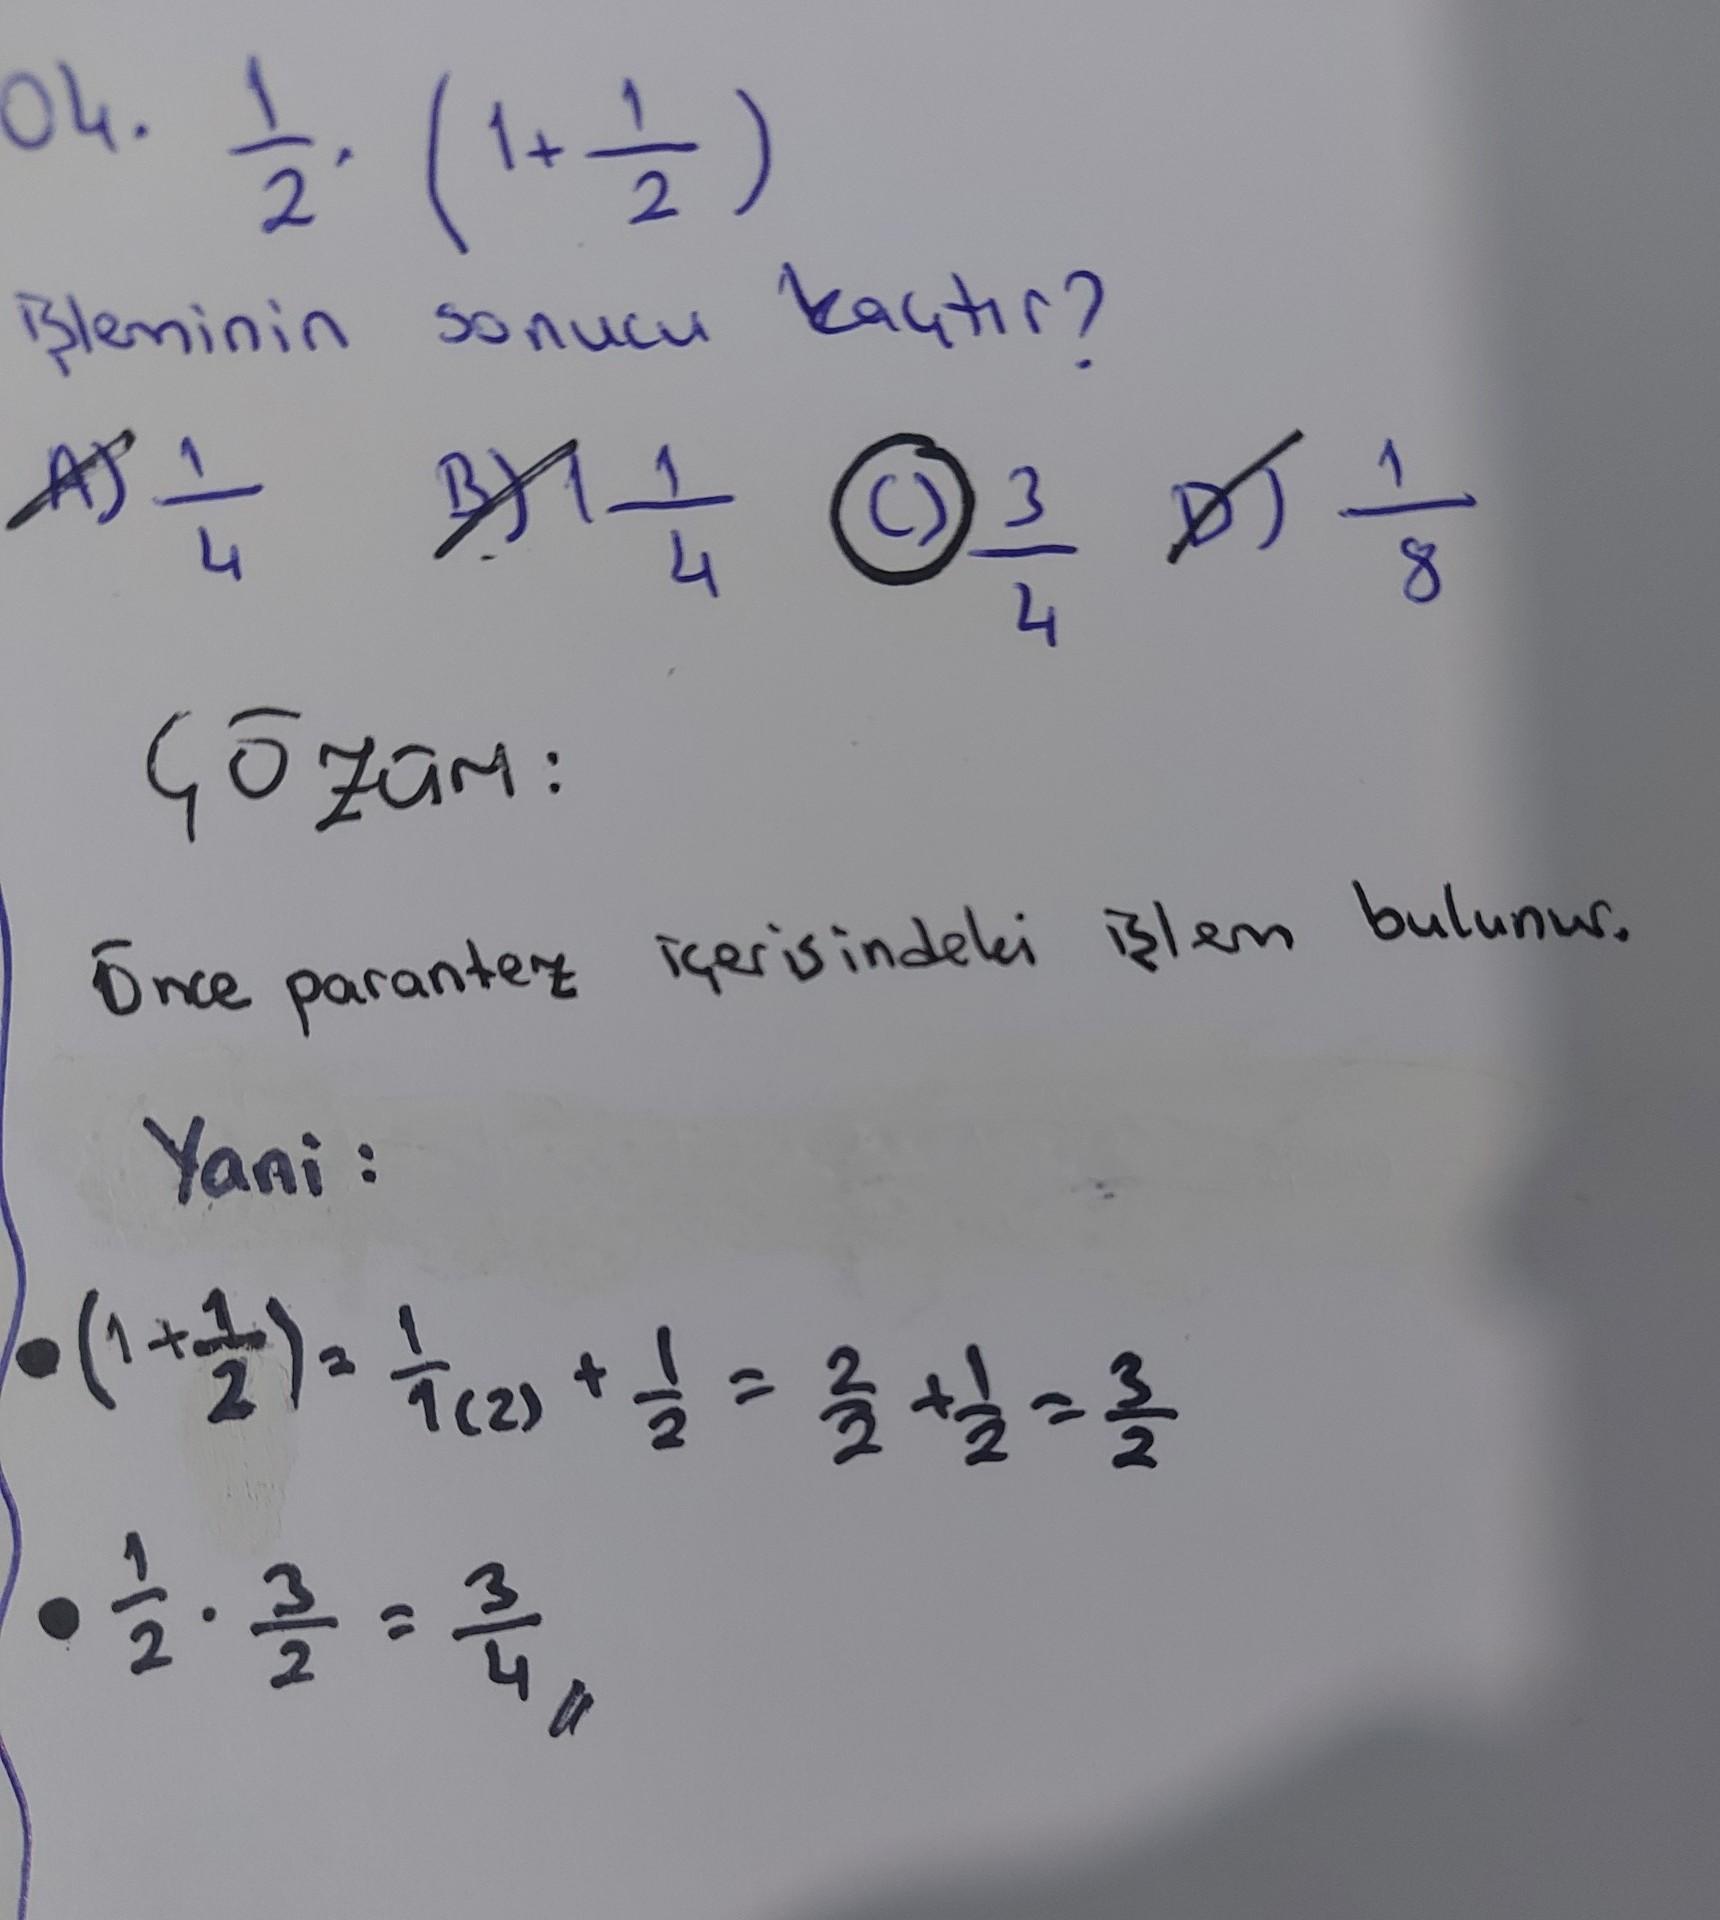 04. 1/2 . (1+ 1/2)
işleminin sonucu kaçtır?
A) 1/4 B) 1 1/4 C) 3/4 D) 1/8
Çözüm:
Önce parantez içerisindeki işlem bulunur.
Yani:
• (1+1/2) = 1/1(2) + 1/2 = 2/2 + 1/2 = 3/2
• 1/2 . 3/2 = 3/4 //